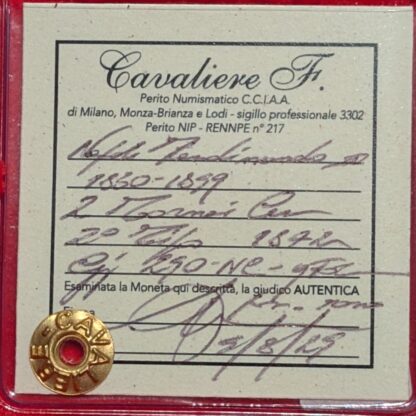 Cavaliere F.
Perito Numismatico C.C.I.A.A.
di Milano, Monza-Brianza e Lodi - sigillo professionale 3302
Perito NIP - RENNPE n° 217
Ferdinando
1830-1899
2 Tornesi
2° Tipo 1842
Gij 290 - NC -
Esaminata la Moneta qui descritta, la giudico AUTENTICA
CAVALIERE